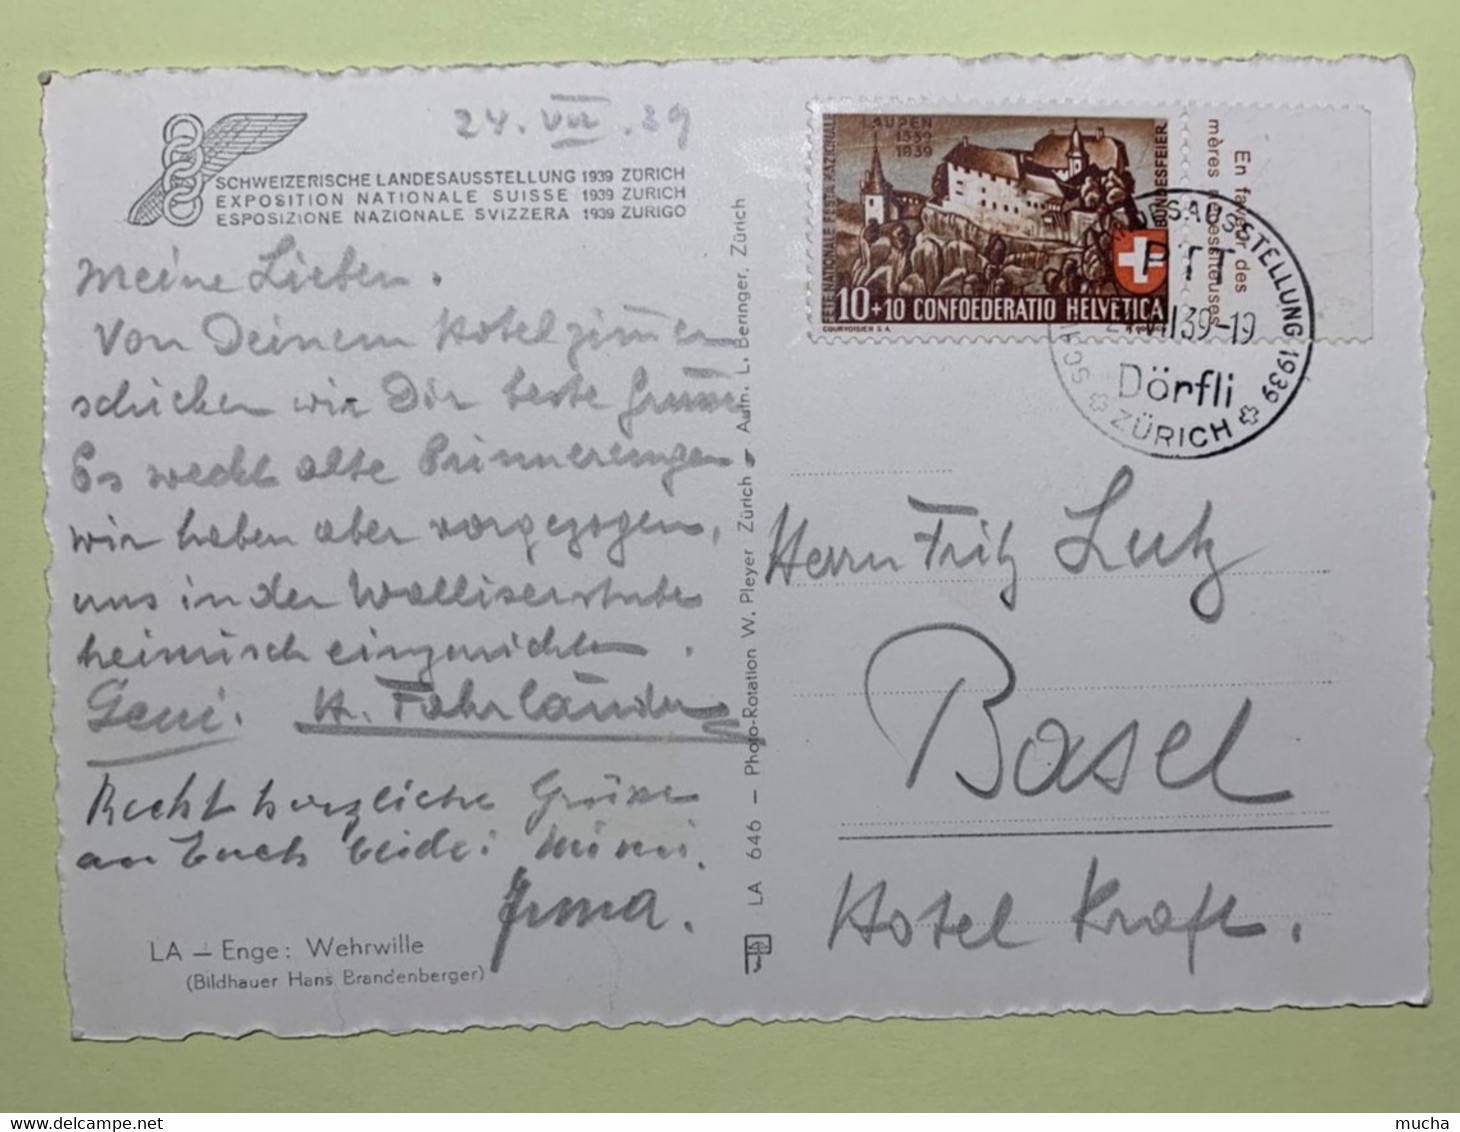 24. VII. 39
SCHWEIZERISCHE LANDESAUSSTELLUNG 1939 ZÜRICH
EXPOSITION NATIONALE SUISSE 1939 ZURICH
ESPOSIZIONE NAZIONALE SVIZZERA 1939 ZURIGO
Meine Lieben.
Von Deinem Hotelzimmer
schicken wir Dir beste Grüsse
Es weckt alte Erinnerungen
wir haben aber vorgezogen,
uns in der Walliserstube
heimisch einzurichten.
Geni. H. Fahrländer
Recht herzliche Grüsse
an Euch beide: Mimi.
Irma.
LA – Enge: Wehrwille
(Bildhauer Hans Brandenberger)
LA 646 – Photo-Rotation W. Pleyer Zürich • Aufn. L. Beringer, Zürich
LAUPEN
1339
1939
FÊTE NATIONALE FESTA NAZIONALE
BUNDESFEIER
10+10 CONFOEDERATIO HELVETICA
COURVOISIER S.A.
En faveur des
mères nécessiteuses
AUSSTELLUNG 1939
PTT
VII 39-19
Dörfli
ZÜRICH
Herrn Fritz Lutz
Basel
Hotel Krafft.
mucha